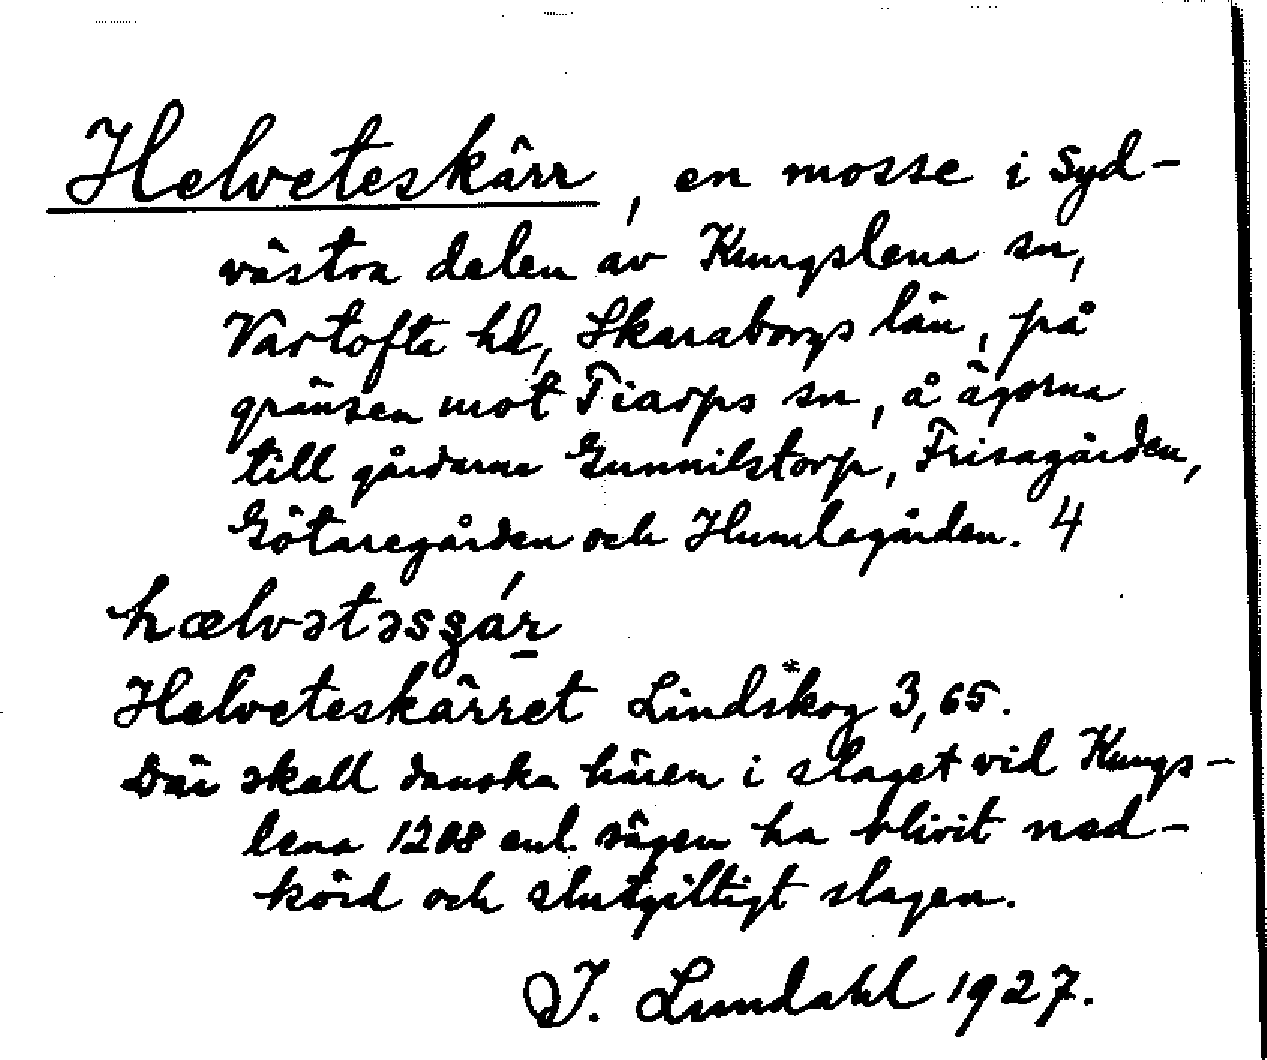 Helveteskärr, en mosse i syd-
västra delen av Kungslena sn,
Vartofta hd, Skaraborgs län, på
gränsen mot Tiarps sn, å ägorna
till gårdarna Gunnilstorp, Frisagården,
Götaregården och Humlagården. 4
hælvətəsʂár
Helveteskärret Lindskog 3,65.
Där skall danska hären i slaget vid Kungs-
lena 1208 enl. sägen ha blivit ned-
körd och slutgiltigt slagen.
I. Lundahl 1927.